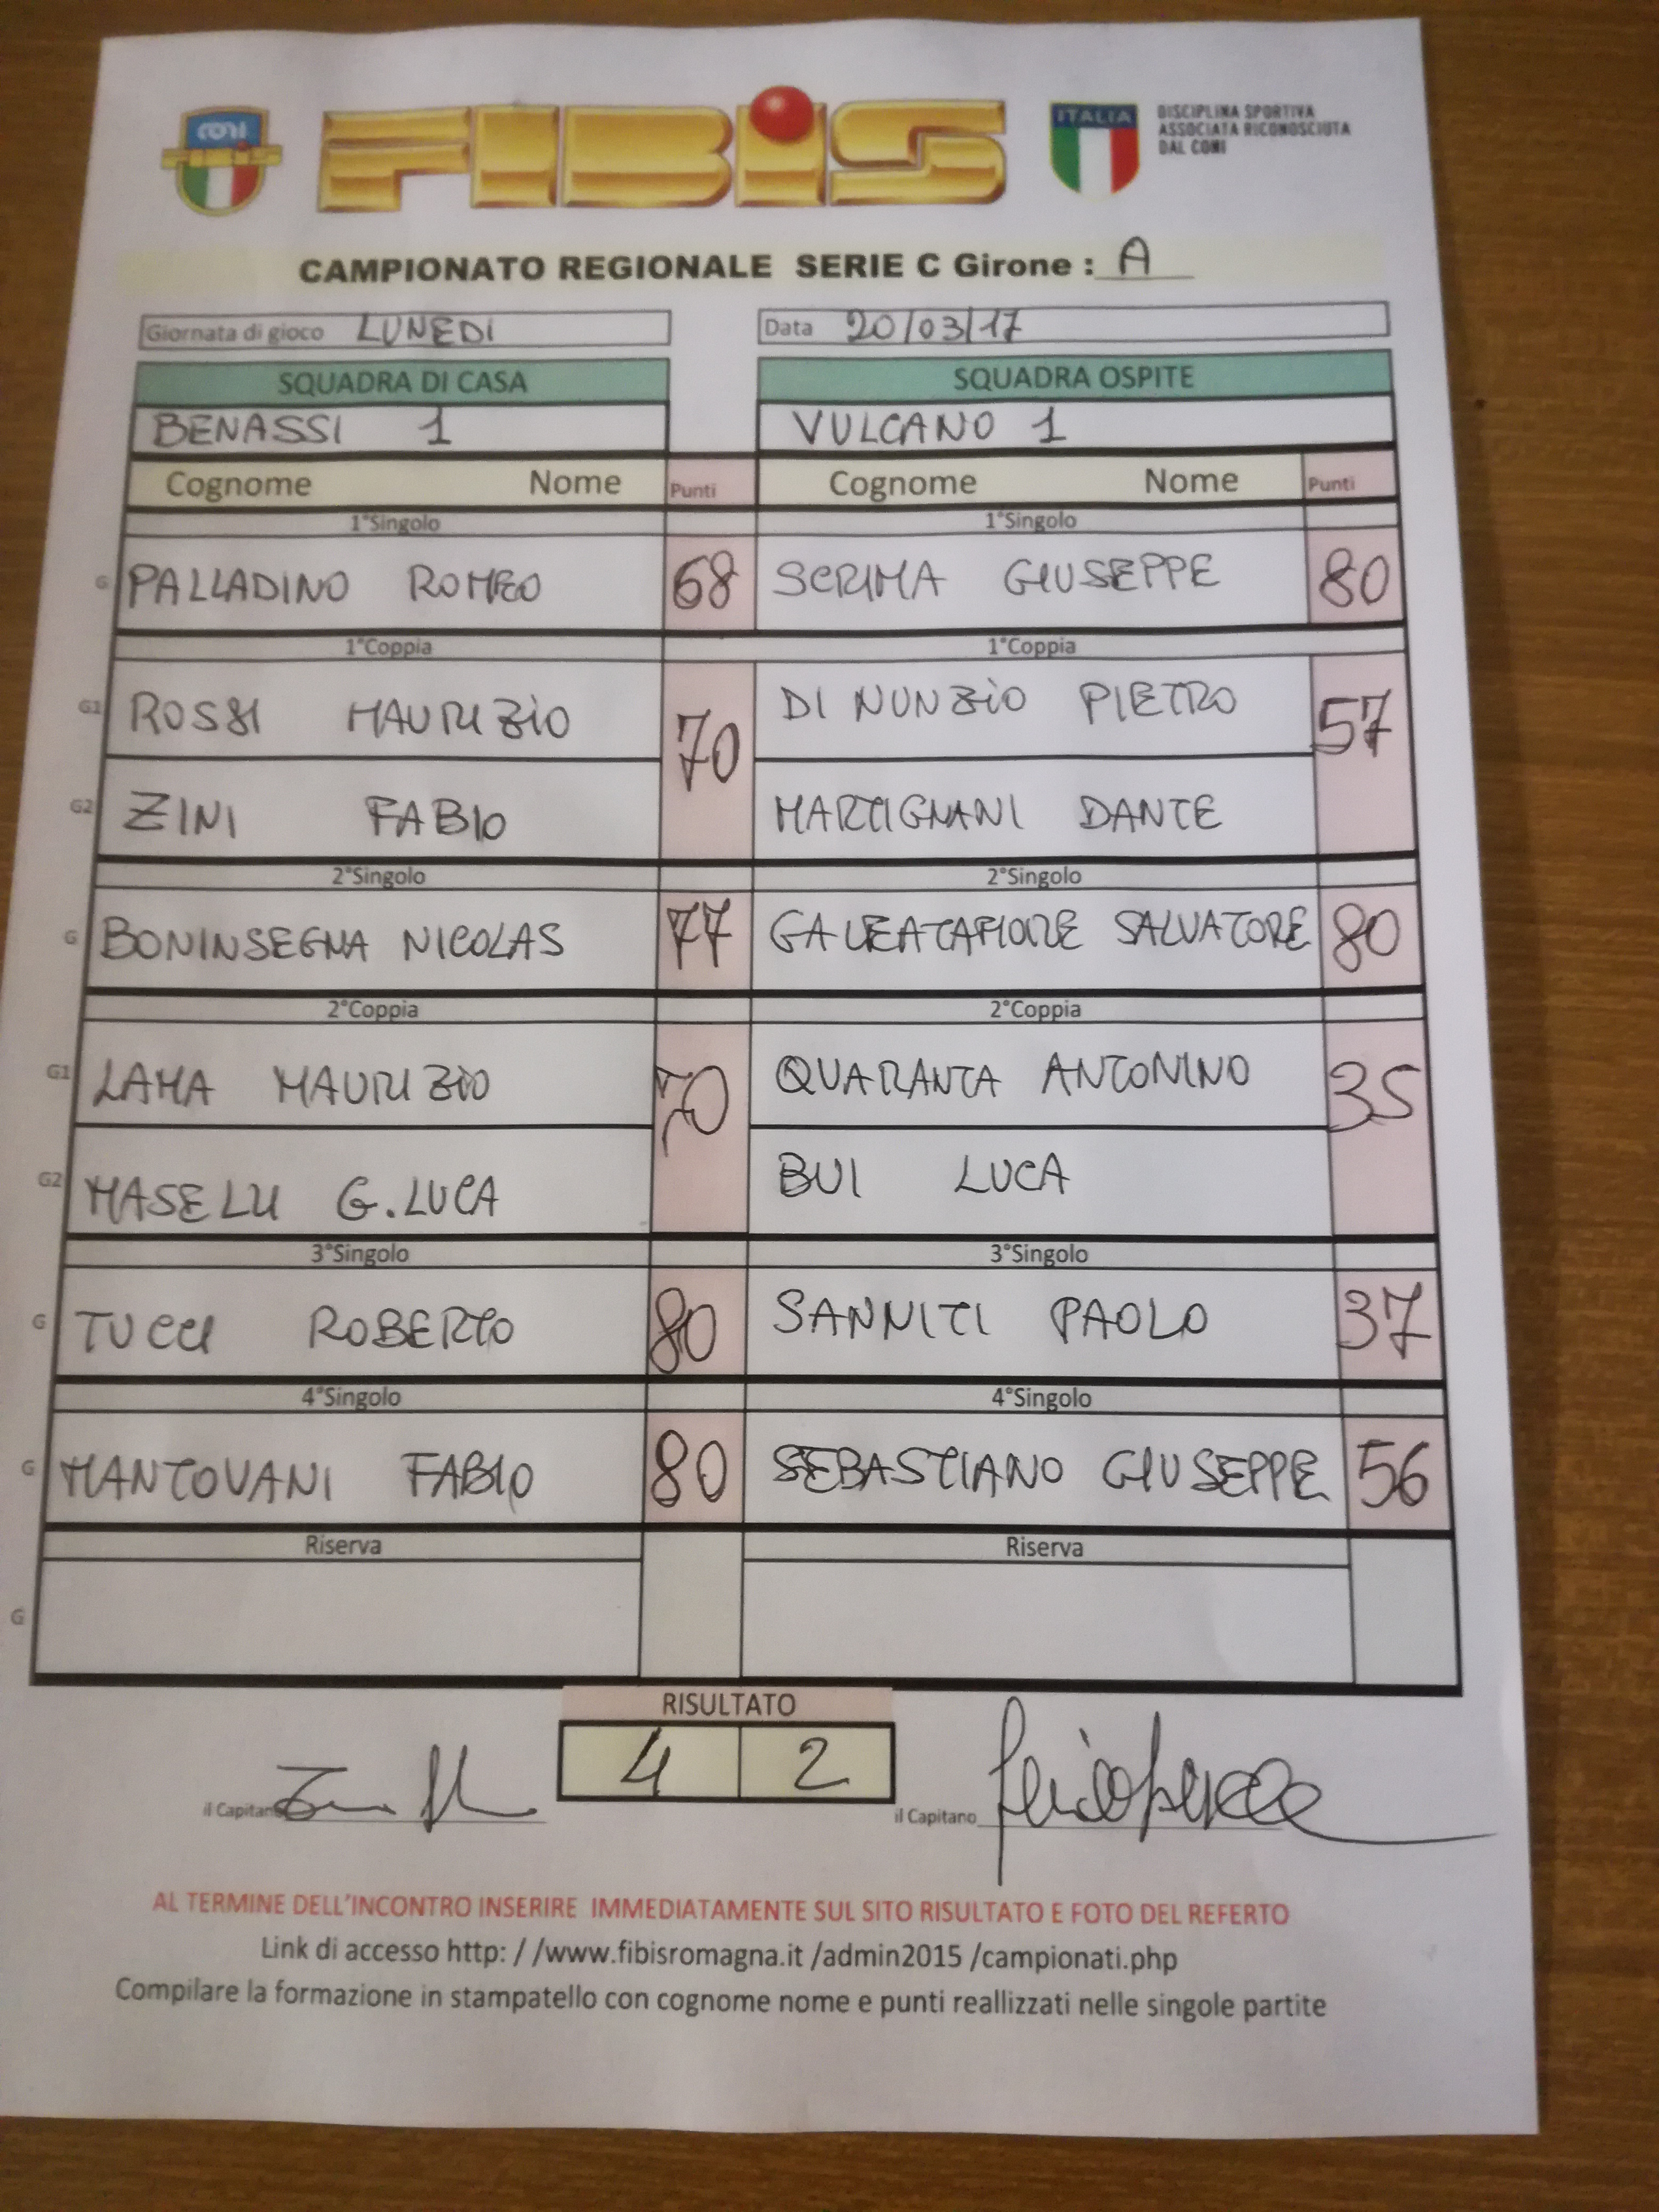 CONI
FIBIS
ITALIA
DISCIPLINA SPORTIVA
ASSOCIATA RICONOSCIUTA
DAL CONI
CAMPIONATO REGIONALE SERIE C Girone : A
Giornata di gioco LUNEDI Data 20/03/17
SQUADRA DI CASA SQUADRA OSPITE
BENASSI 1 VULCANO 1
Cognome Nome Punti Cognome Nome Punti
1°Singolo 1°Singolo
G PALLADINO ROMEO 68 SCRIMA GIUSEPPE 80
1°Coppia 1°Coppia
G1 ROSSI MAURIZIO 70 DI NUNZIO PIETRO 57
G2 ZINI FABIO MARTIGNANI DANTE
2°Singolo 2°Singolo
G BONINSEGNA NICOLAS 77 SALVATORE 80
2°Coppia 2°Coppia
G1 LAMA MAURIZIO 70 QUARANTA ANTONINO 35
G2 MASELLI G.LUCA BUI LUCA
3°Singolo 3°Singolo
G TUCCI ROBERTO 80 SANNITI PAOLO 37
4°Singolo 4°Singolo
G MANTOVANI FABIO 80 SEBASTIANO GIUSEPPE 56
Riserva Riserva
G
RISULTATO
4 2
il Capitano il Capitano
AL TERMINE DELL'INCONTRO INSERIRE IMMEDIATAMENTE SUL SITO RISULTATO E FOTO DEL REFERTO
Link di accesso http: / /www.fibisromagna.it /admin2015 /campionati.php
Compilare la formazione in stampatello con cognome nome e punti reallizzati nelle singole partite